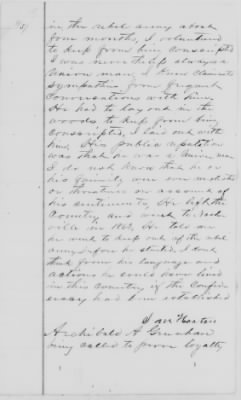 in the rebel army about
four months, I volunteered
to keep from being conscripted
I was nevertheless always a
Union man, I knew Claimants
sympathies from frequent
conversations with him.
He had to lay out in the
woods to keep from being
conscripted, I laid out with
him. His public reputation
was that he was a Union man
I do not know that he or
his family were ever molested
or threatened on account of
his sentiments, He left the
County, and went to
ville in 1863, He told me
he went to keep out of the rebel
army before he started, I don't
think from his language and
actions he could have lived
in this country if the Confed-
eracy had been established
Archibald A
being called to prove loyalty